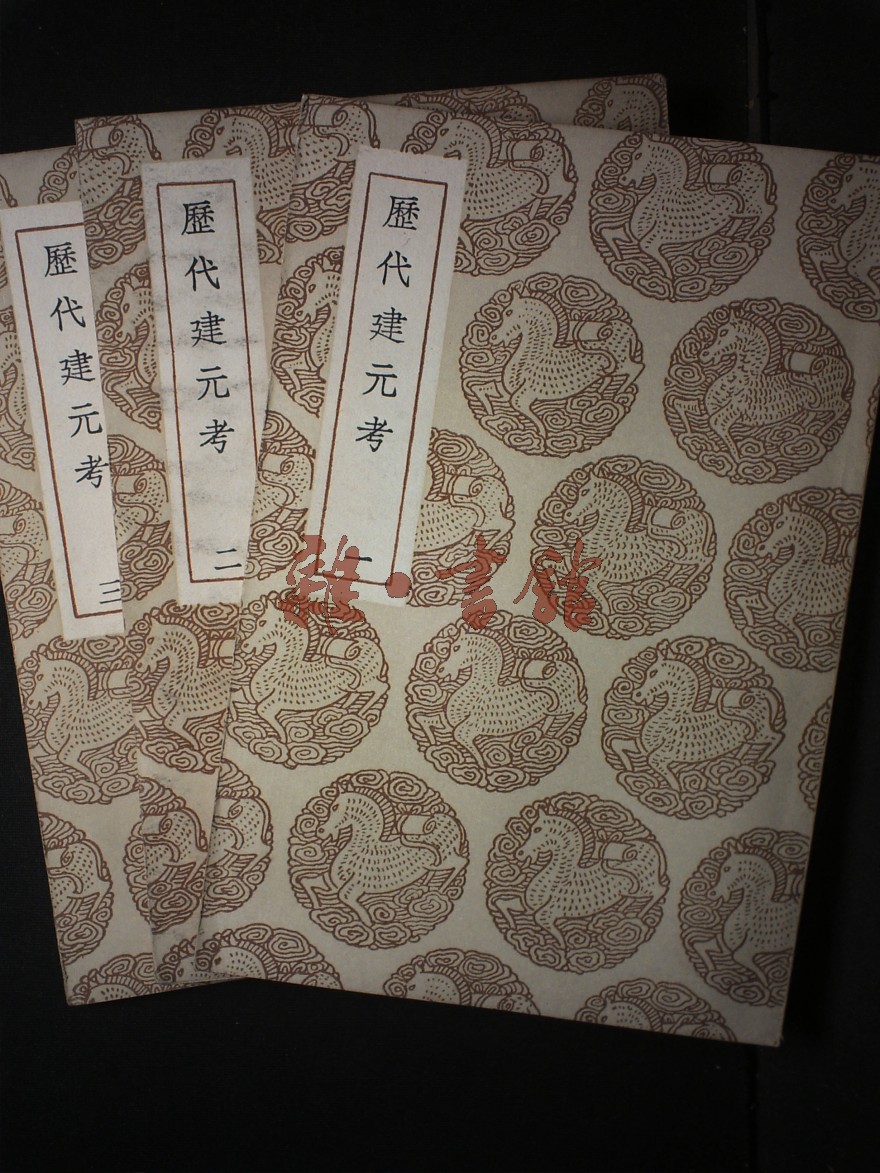 歷代建元考 一
歷代建元考 二
歷代建元考 三
雜·書館